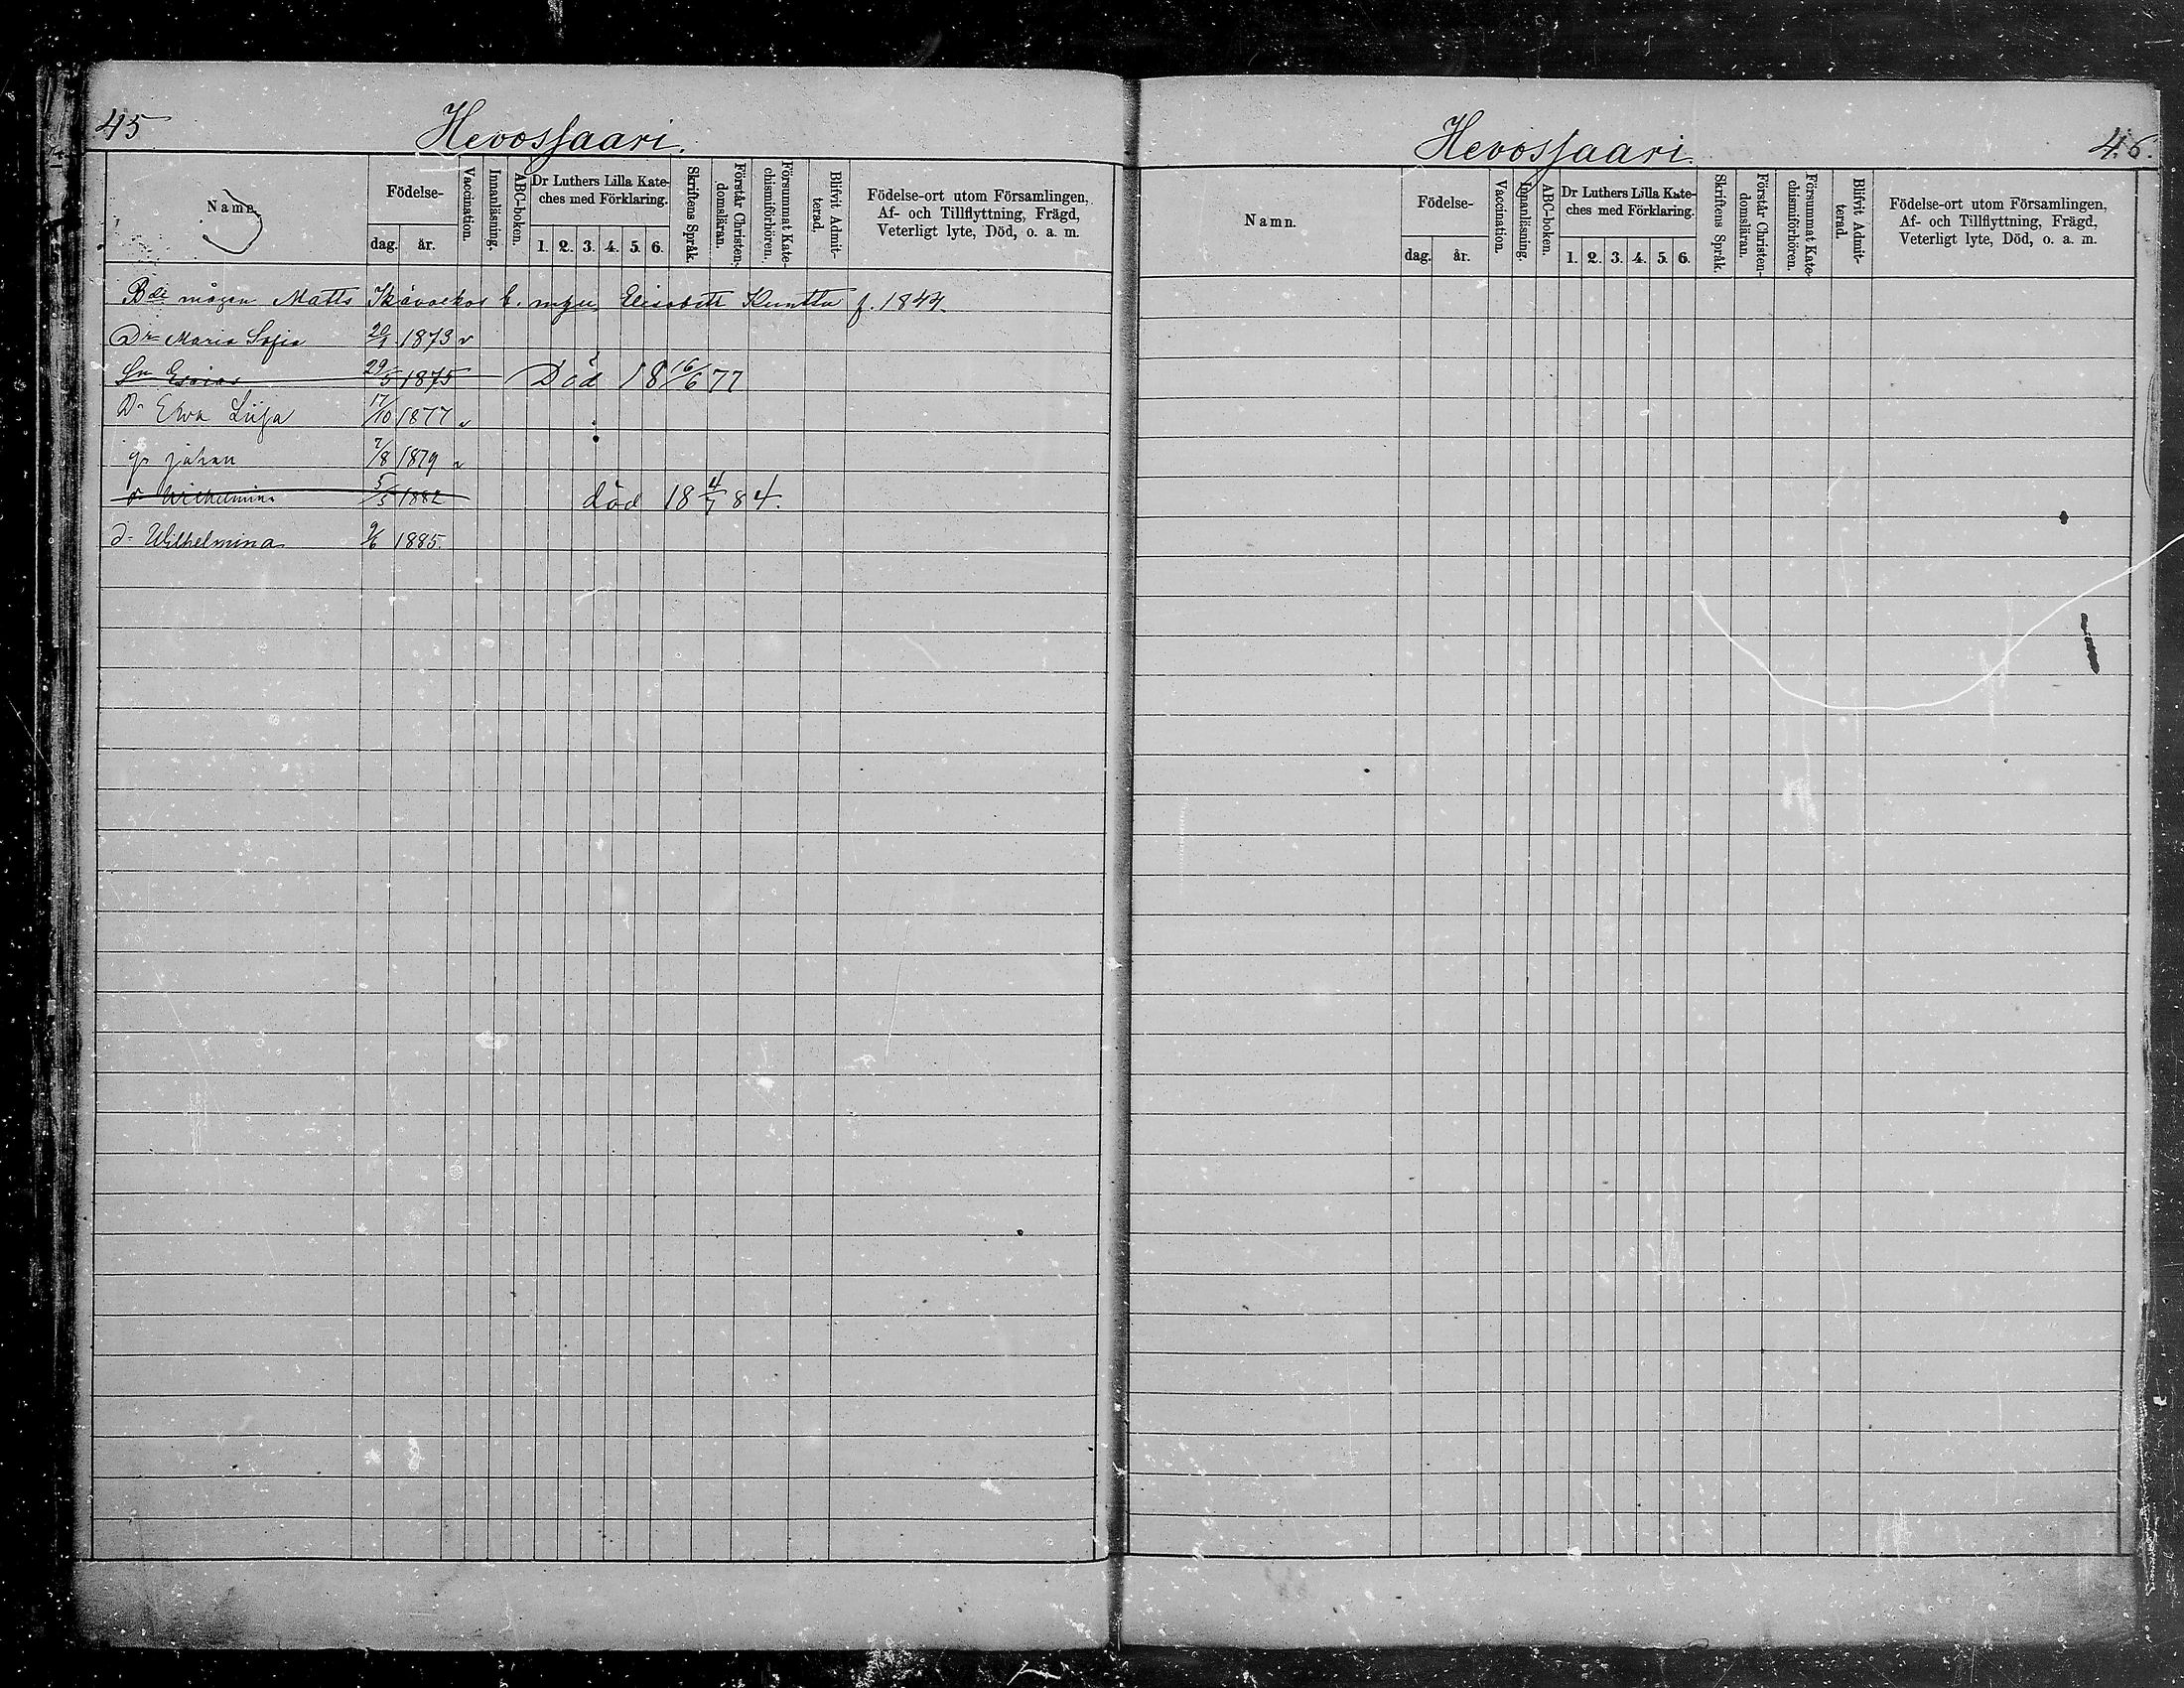 45
Hevossaari.
Namn.
Födelse-
dag.
år.
Vaccination.
Innanläsning.
ABC-boken.
Dr Luthers Lilla Kate-
ches med Förklaring.
1. 2. 3. 4. 5. 6.
Skriftens Språk.
Förstår Christen-
domsläran.
Försummat Kate-
chismiförhören.
Blifvit Admit-
terad.
Födelse-ort utom Församlingen,
Af- och Tillflyttning, Frägd,
Veterligt lyte, Död, o. a. m.
mågen Matts Elisabett Kunttu f. 1844.
Dr Maria Sofia 1873
Sn Esaias 29/5 1875 Död 18 16/6 77
Dr Ewa Liisa 17/10 1877
johan 7/8 1879
d. Wilhelmina 5/5 1882 död 18 4/7 84.
d. Wilhelmina 9/6 1885.
Hevossaari.
46.
Namn.
Födelse-
dag.
år.
Vaccination.
Innanläsning.
ABC-boken.
Dr Luthers Lilla Kate-
ches med Förklaring.
1. 2. 3. 4. 5. 6.
Skriftens Språk.
Förstår Christen-
domsläran.
Försummat Kate-
chismiförhören.
Blifvit Admit-
terad.
Födelse-ort utom Församlingen,
Af- och Tillflyttning, Frägd,
Veterligt lyte, Död, o. a. m.